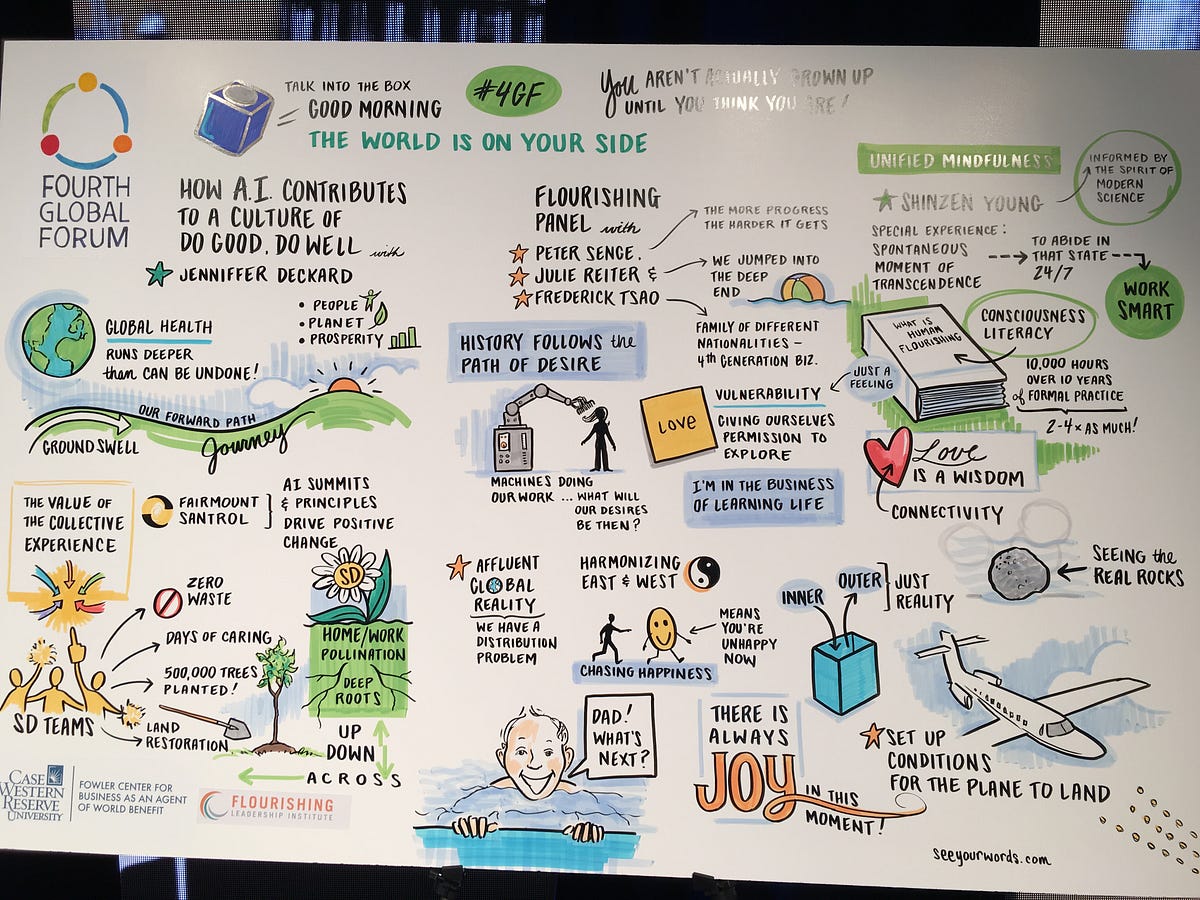 FOURTH
GLOBAL
FORUM
TALK INTO THE BOX
GOOD MORNING
THE WORLD IS ON YOUR SIDE
#4GF
You AREN'T ACTUALLY GROWN UP
UNTIL YOU THINK YOU ARE!
HOW A.I. CONTRIBUTES
TO A CULTURE OF
DO GOOD, DO WELL with
JENNIFFER DECKARD
GLOBAL HEALTH
RUNS DEEPER
than CAN BE UNDONE!
• PEOPLE
• PLANET
• PROSPERITY
OUR FORWARD PATH
GROUND SWELL
Journey
THE VALUE OF
THE COLLECTIVE
EXPERIENCE
FAIRMOUNT
SANTROL
AI SUMMITS
& PRINCIPLES
DRIVE POSITIVE
CHANGE
ZERO
WASTE
DAYS OF CARING
500,000 TREES
PLANTED!
LAND
RESTORATION
SD TEAMS
SD
HOME/WORK
POLLINATION
DEEP
ROOTS
UP
DOWN
ACROSS
CASE
WESTERN
RESERVE
UNIVERSITY
FOWLER CENTER FOR
BUSINESS AS AN AGENT
OF WORLD BENEFIT
FLOURISHING
LEADERSHIP INSTITUTE
FLOURISHING
PANEL with
PETER SENGE,
JULIE REITER &
FREDERICK TSAO
THE MORE PROGRESS
THE HARDER IT GETS
WE JUMPED INTO
THE DEEP
END
FAMILY OF DIFFERENT
NATIONALITIES –
4th GENERATION BIZ.
HISTORY FOLLOWS the
PATH OF DESIRE
MACHINES DOING
OUR WORK ... WHAT WILL
OUR DESIRES
BE THEN?
LOVE
VULNERABILITY
GIVING OURSELVES
PERMISSION TO
EXPLORE
JUST A
FEELING
I'M IN THE BUSINESS
OF LEARNING LIFE
AFFLUENT
GLOBAL
REALITY
WE HAVE A
DISTRIBUTION
PROBLEM
HARMONIZING
EAST & WEST
MEANS
YOU'RE
UNHAPPY
NOW
CHASING HAPPINESS
DAD!
WHAT'S
NEXT?
THERE IS
ALWAYS
JOY
IN THIS
MOMENT!
UNIFIED MINDFULNESS
SHINZEN YOUNG
INFORMED BY
THE SPIRIT OF
MODERN
SCIENCE
SPECIAL EXPERIENCE:
SPONTANEOUS
MOMENT OF
TRANSCENDENCE
TO ABIDE IN
THAT STATE
24/7
WORK
SMART
WHAT IS
HUMAN
FLOURISHING
CONSCIOUSNESS
LITERACY
10,000 HOURS
OVER 10 YEARS
of FORMAL PRACTICE
2-4x AS MUCH!
Love
IS A WISDOM
CONNECTIVITY
SEEING the
REAL ROCKS
INNER
OUTER
JUST
REALITY
SET UP
CONDITIONS
FOR THE PLANE TO LAND
seeyourwords.com